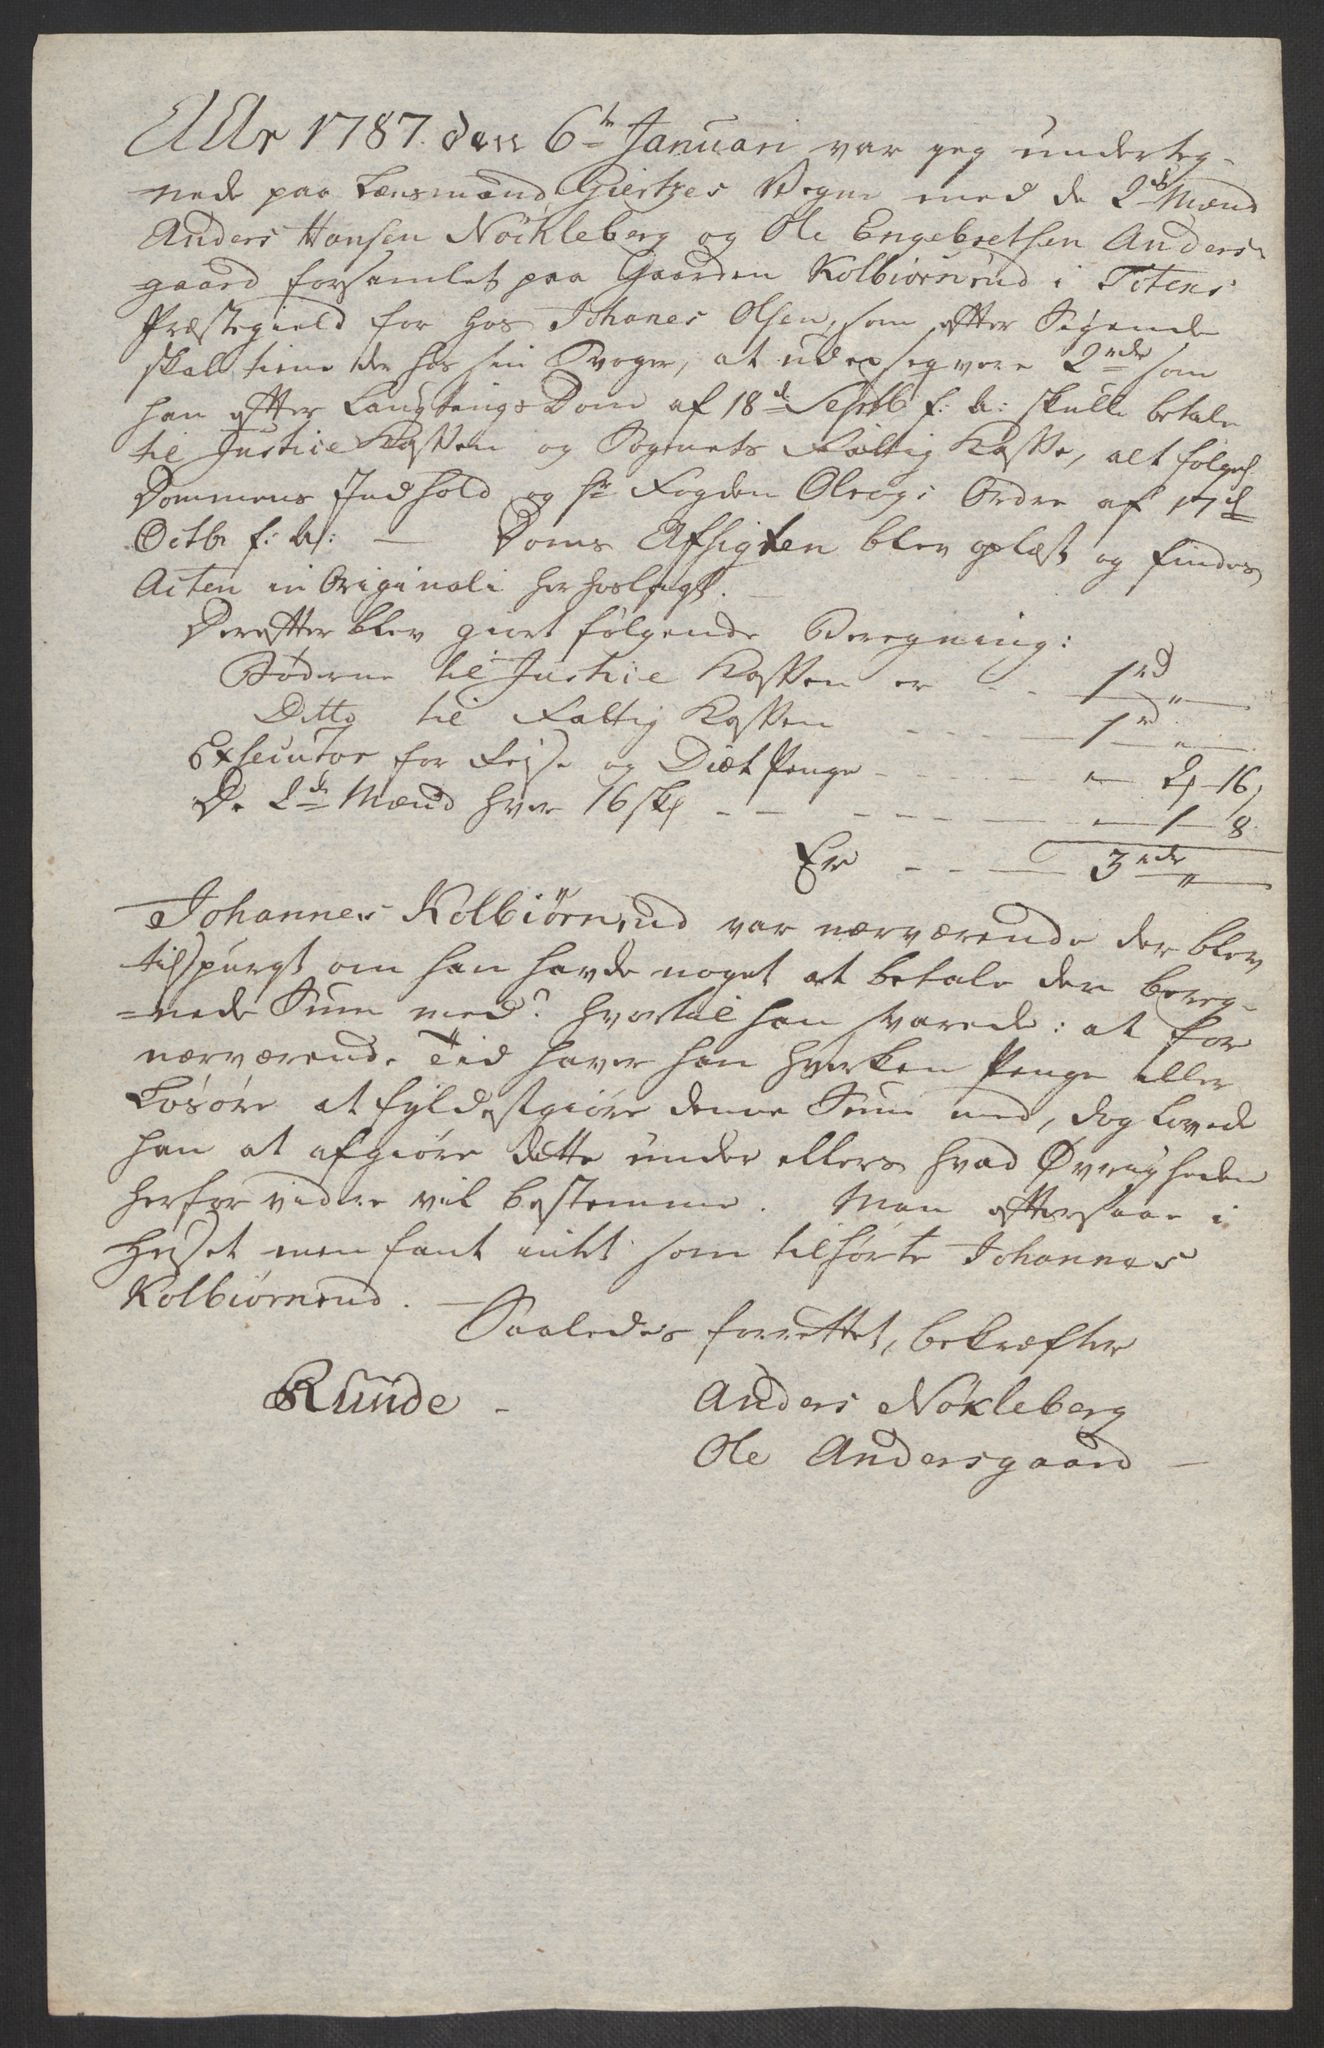 AAr 1787. den 6te Januari var jeg underteg-
nede paa Lænsmand Giertzes Vegne med de 2de Mænd
Anders Hansen Nöckleberg og Ole Engebretsen Anders-
gaard forsamlet paa Gaarden Kolbiørnrud i Totens
Præstegield for hos Johanes Olsen, som efter Sigende
skal tiene der hos sin Svoger, at udexseqvere 2rdr som
han efter Laugtings Dom af 18de Septb f: A: skulle betale
til Justice Kassen og Sognets Fattig Kasse, alt følgel.
Dommens Indhold og Hr Fogden Olrogs Ordre af 17de
Octbr f: A: — Doms Afsigten blev oplæst og findes
Acten in Originali her hoslagt.
Derefter blev giort følgende Beregning:
Bøderne til Justice Kassen er - - 1rd „
Ditto til Fattig Kassen - - - - 1rd „
Exsecutor for Reise og Diæt Penge - - - - „ 2, 16,
De 2de Mænd hver 16 sk - - - - - - - „ 1 - 8
Er - - - 3rdr „
Johannes Kolbiörnrud var nærværende der blev
tilspurgt om han havde noget at betale den bereg-
=nede Sum med? hvortil han svarede: at for
nærværende Tid haver han hverken Penge eller
Løsøre at fyldestgiøre denne Sum med, dog lovede
han at afgiøre dette under ellers hvad Øvrigheden
herfor vidre vil bestemme. Man eftersaae i
Huset men fant intet som tilhørte Johannes
Kolbiørnrud. —
Saaledes forrettet, bekræfter
Runde - Anders Nökleberg
Ole Andersgaard —